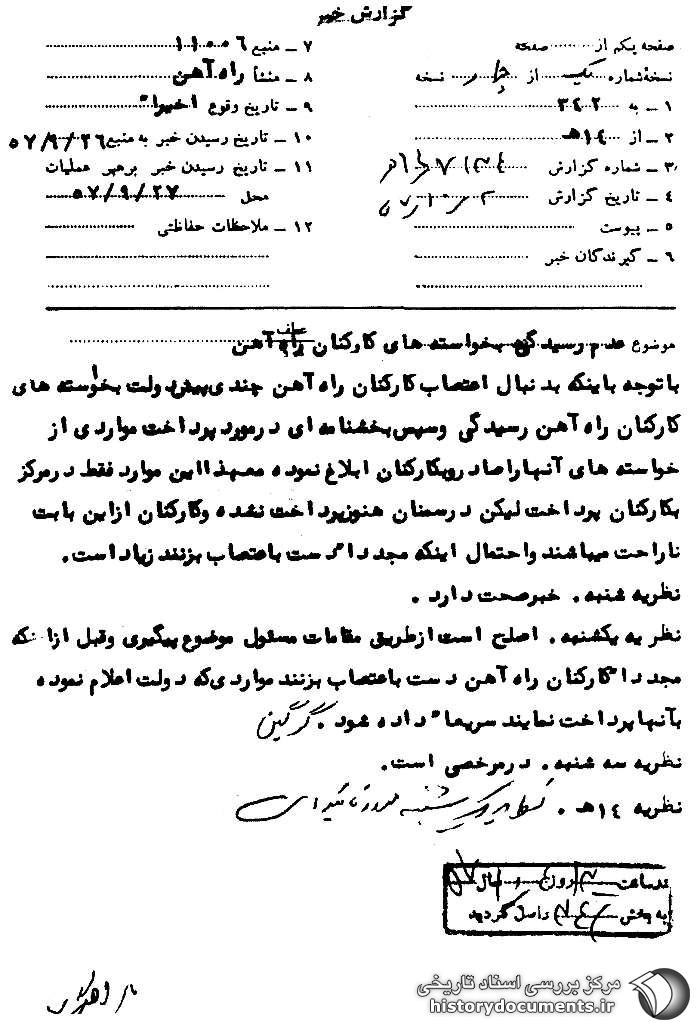 گزارش خبر
صفحه یکم از ........ صفحه
نسخهٔ شماره یک از چهار نسخه
۱ ـ به ۳۴۲
۲ ـ از ۱۴هـ
۳ ـ شماره گزارش
۴ ـ تاریخ گزارش
۵ ـ پیوست
۶ ـ گیرندگان خبر
۷ ـ منبع ۱۱۰۰۶
۸ ـ منشأ راه آهن
۹ ـ تاریخ وقوع اخیراً
۱۰ ـ تاریخ رسیدن خبر به منبع ۵۷/۹/۲۶
۱۱ ـ تاریخ رسیدن خبر برهبر عملیات
محل ۵۷/۹/۲۷
۱۲ ـ ملاحظات حفاظتی
موضوع عدم رسیدگی بخواسته های کارکنان راه آهن
عطف
باتوجه باینکه بدنبال اعتصاب کارکنان راه آهن چندی پیش دولت بخواسته های
کارکنان راه آهن رسیدگی وسپس بخشنامه ای درمورد پرداخت مواردی از
خواسته های آنها را صادر وبکارکنان ابلاغ نموده معهذا این موارد فقط درمرکز
بکارکنان پرداخت لیکن درسمنان هنوز پرداخت نشده وکارکنان ازاین بابت
ناراحت میباشند واحتمال اینکه مجدداً دست باعتصاب بزنند زیاد است.
نظریه شنبه. خبرصحت دارد.
نظریه یکشنبه. اصلح است ازطریق مقامات مسئول موضوع پیگیری وقبل ازاینکه
مجدداً کارکنان راه آهن دست باعتصاب بزنند مواردی که دولت اعلام نموده
بآنها پرداخت نمایند سریعاً داده شود. گرگین
نظریه سه شنبه. درمرخصی است.
نظریه ۱۴هـ. نظریه یکشنبه مورد تائید است
در ساعت روز سال ۵۷
به بخش واصل گردید
مرکز بررسی اسناد تاریخی
historydocuments.ir